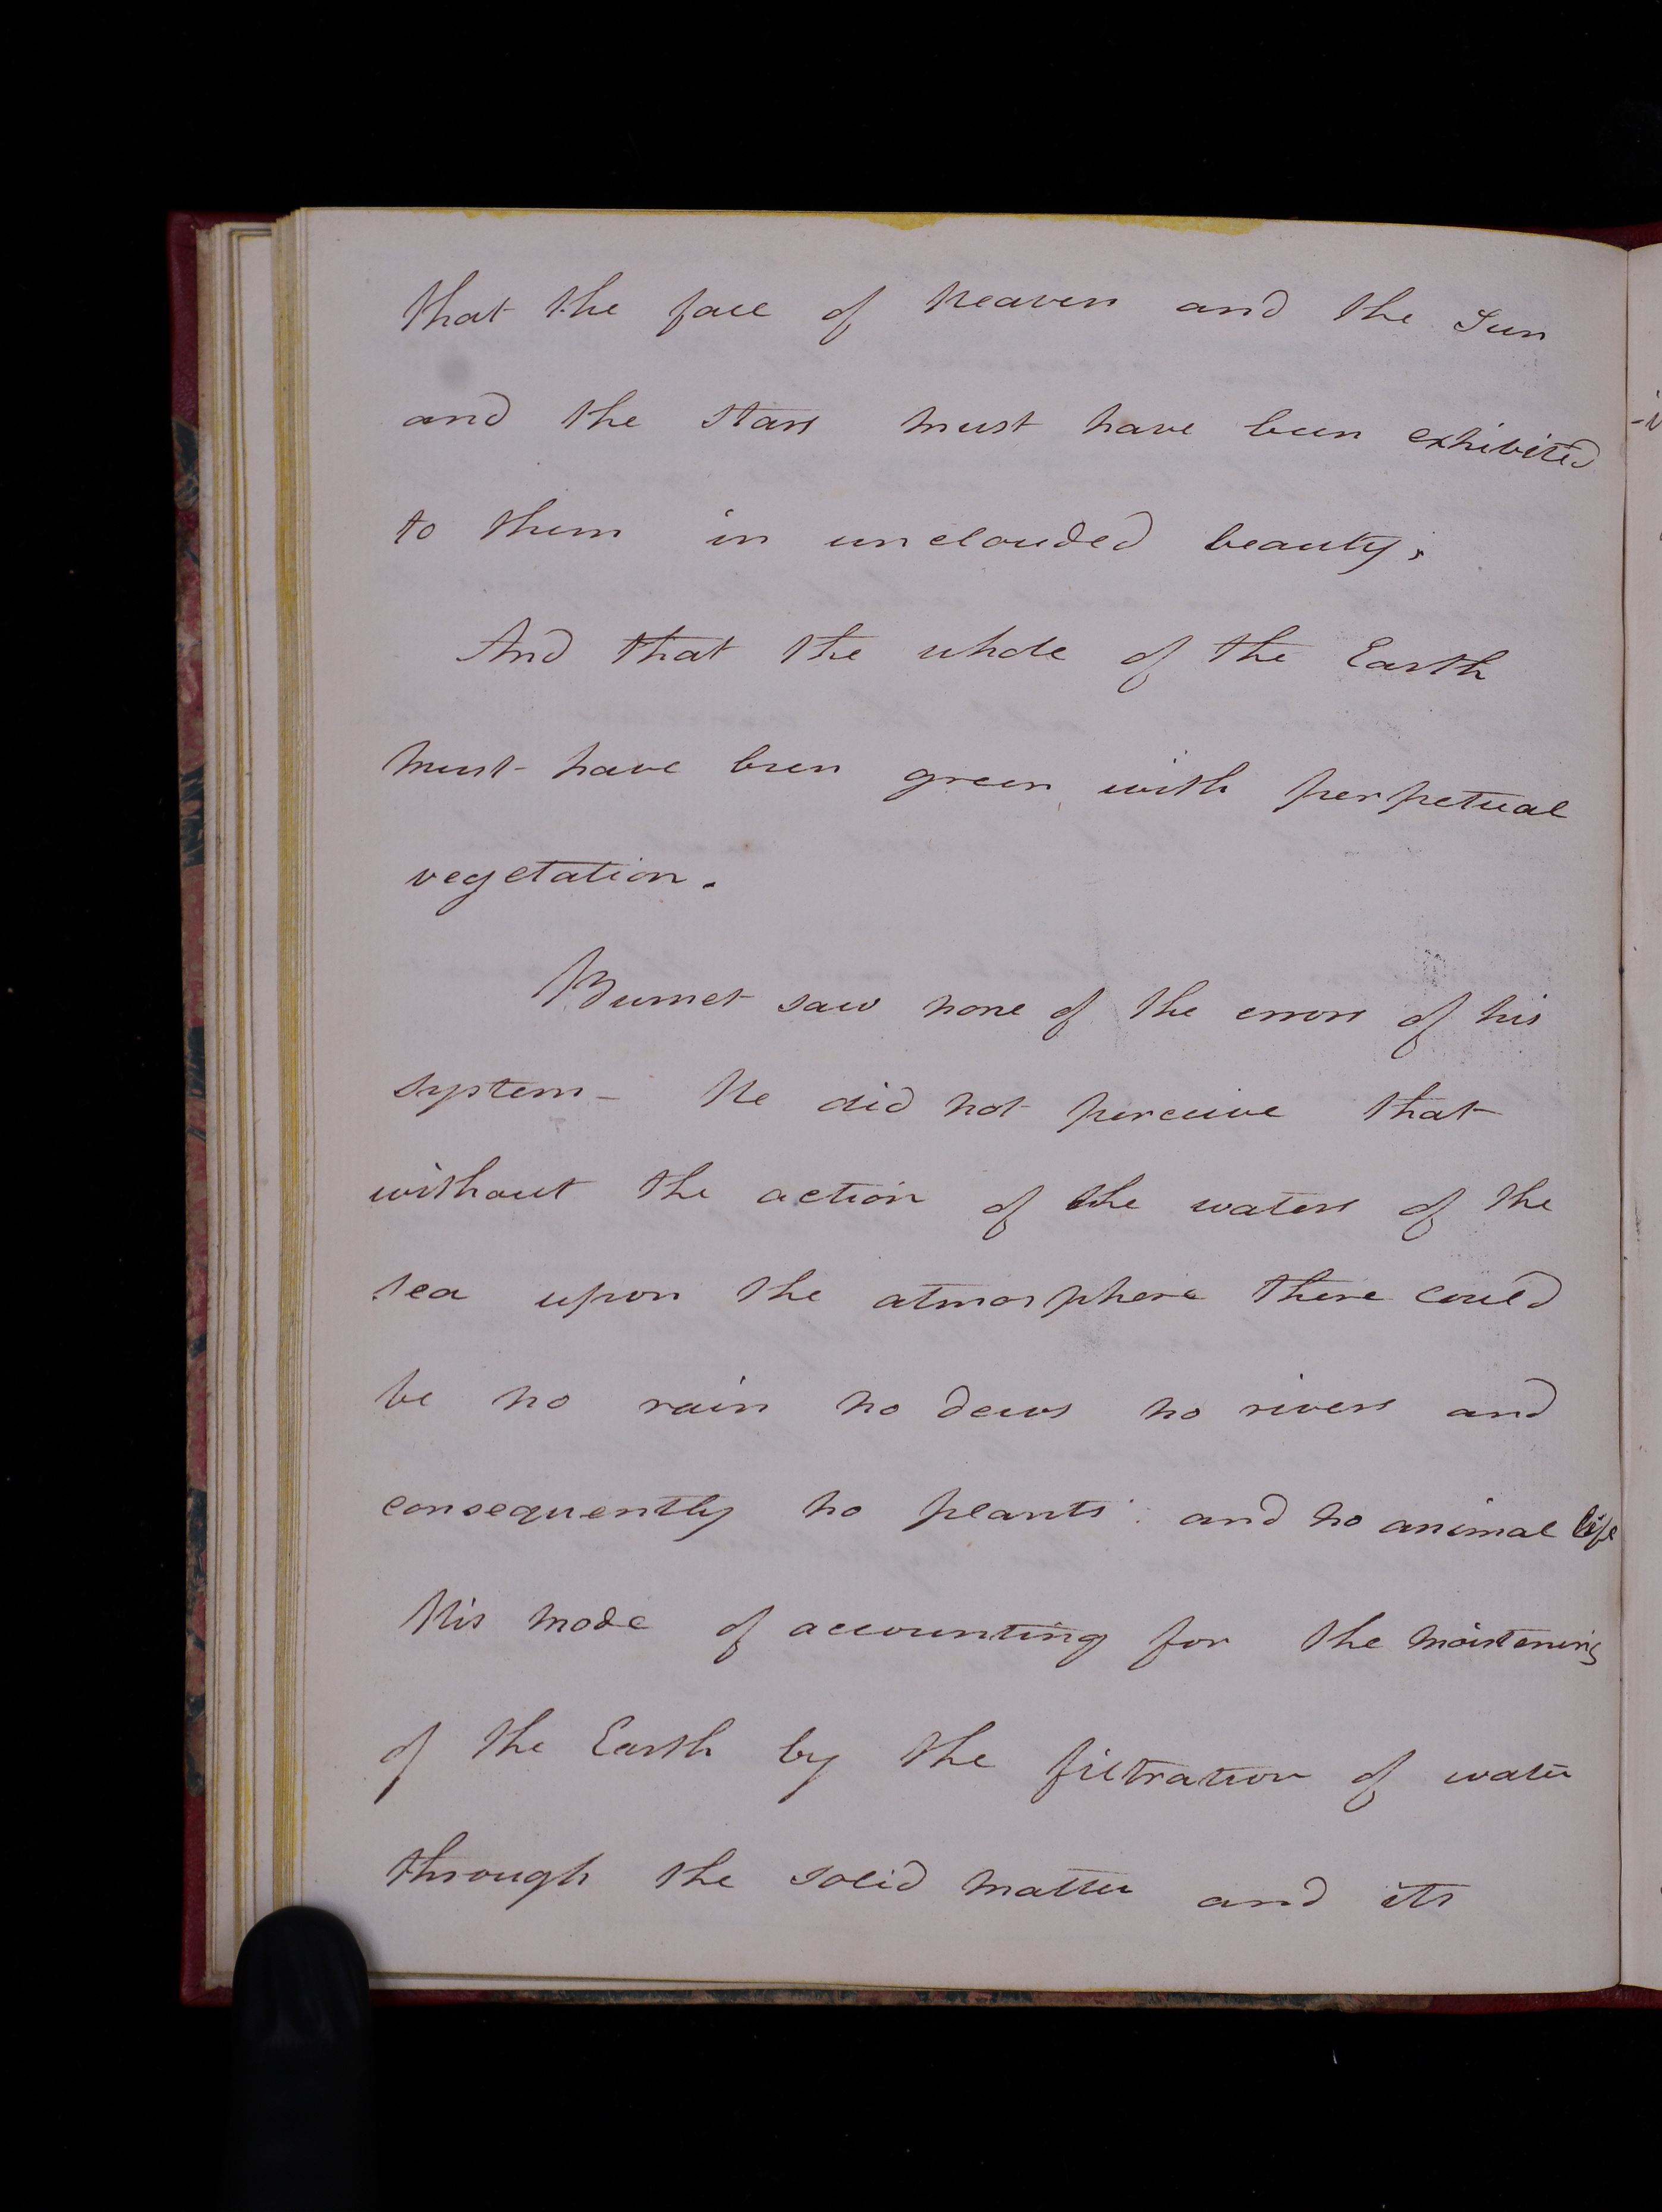 that the face of Heaven and the Sun
and the stars must have been exhibited
to them in unclouded beauty;
And that the whole of the Earth
must have been green with perpetual
vegetation.
Burnet saw none of the errors of his
system - He did not perceive that
without the action of the waters of the
sea upon the atmosphere there could
be no rain no dews no rivers and
consequently no plants and no animal life
His mode of accounting for the moistening
of the Earth by the filtration of water
through the solid matter and its